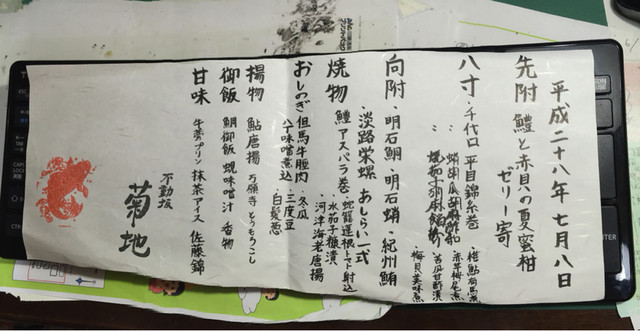 平成二十八年 七月 八日
先附 鱧と赤貝の夏蜜柑
ゼリー寄
八寸・千代口 平目錦糸巻
蛸胡瓜胡麻酢和
向附・明石鯛・明石蛸・紀州鮪
・淡路栄螺 あしらい一式
焼物 鱧 アスパラ巻
・蛇籠蓮根トマト射込
・水茄子糠漬
・河津海老唐揚
おしのぎ 但馬牛腿肉 ・冬瓜
八丁味噌煮込 ・三度豆
・白髪葱
揚物 鮎唐揚 万願寺 とうもろこし
御飯 鯛御飯 蜆味噌汁 香物
甘味 牛蒡プリン 抹茶アイス 佐藤錦
不動坂
菊地